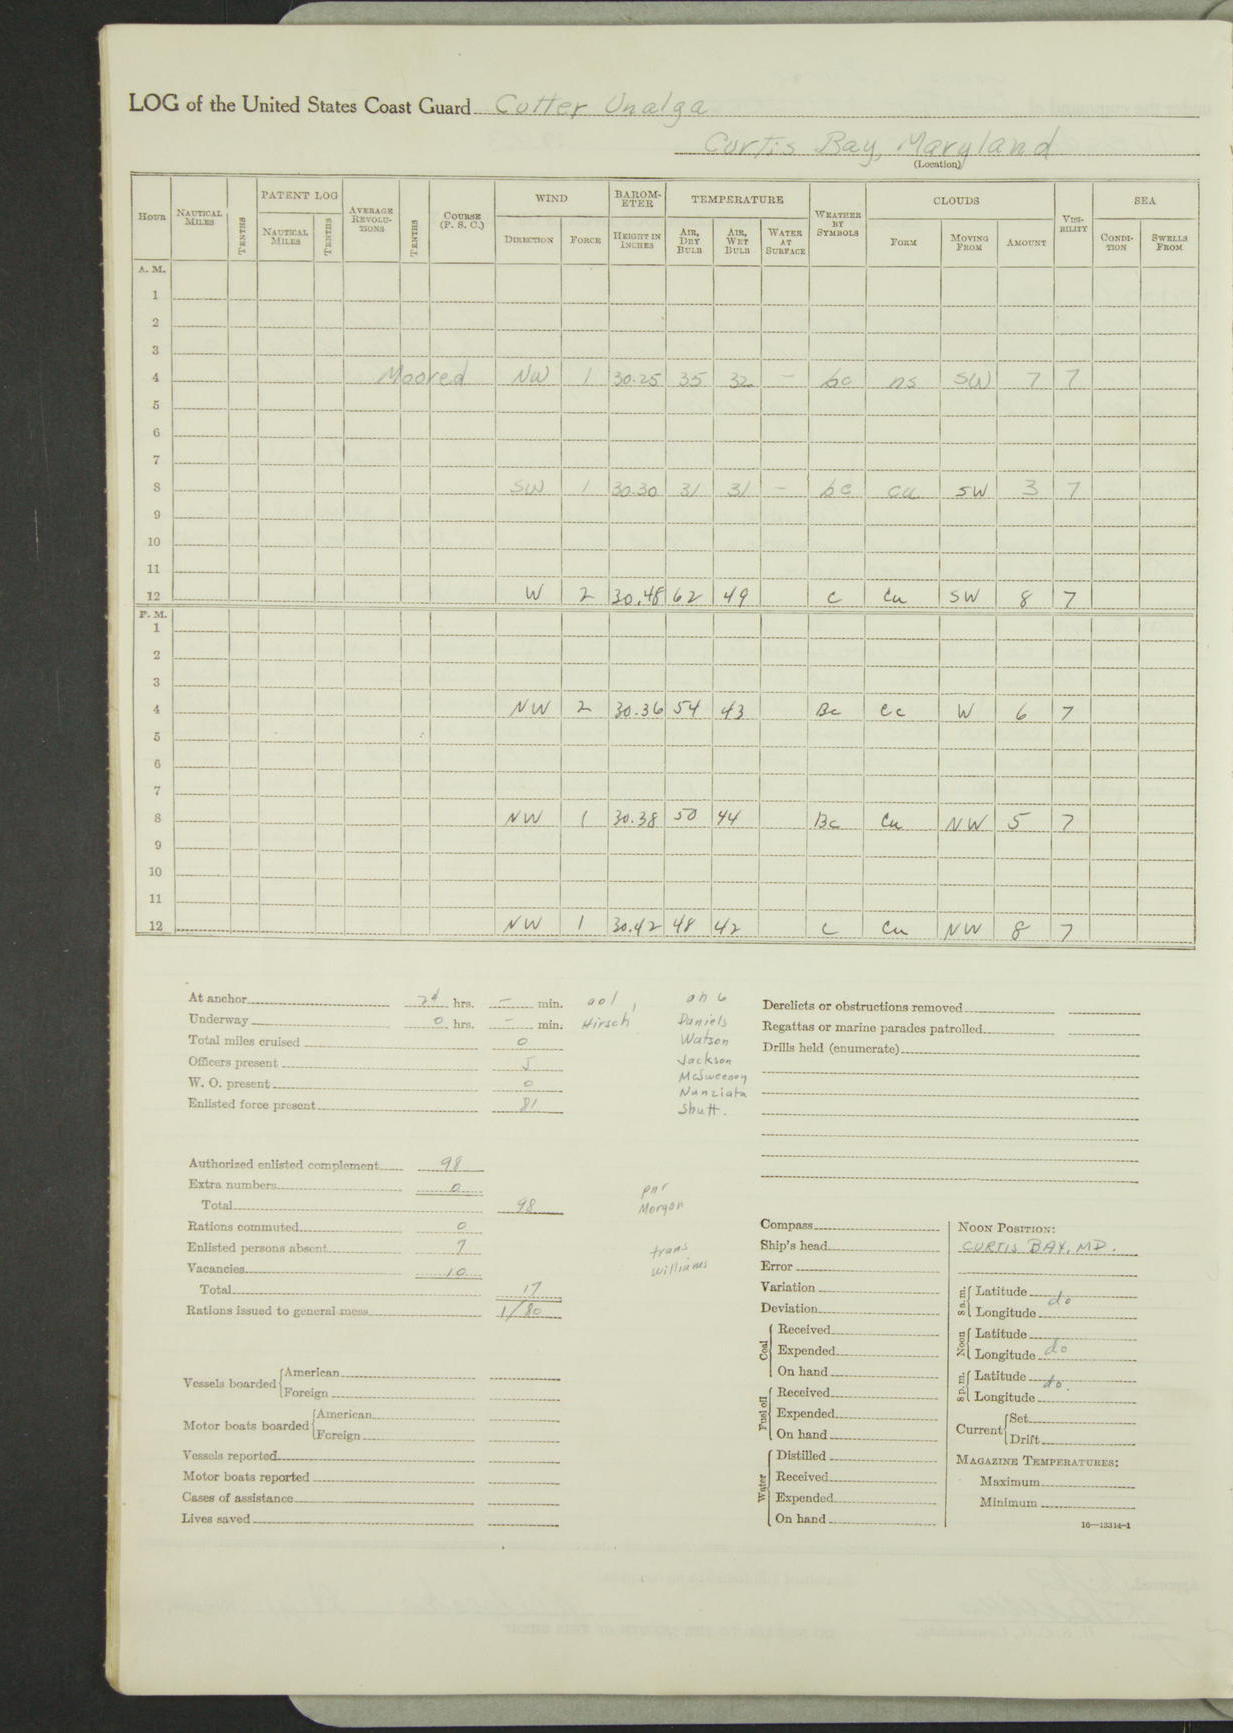 LOG of the United States Coast Guard Cutter Unalga
Curtis Bay, Maryland
(Location)
HOUR NAUTICAL MILES TENTHS PATENT LOG NAUTICAL MILES TENTHS AVERAGE REVOLU-TIONS TENTHS COURSE (P. S. C.) WIND DIRECTION FORCE BAROM-ETER HEIGHT IN INCHES TEMPERATURE AIR, DRY BULB AIR, WET BULB WATER AT SURFACE WEATHER BY SYMBOLS CLOUDS FORM MOVING FROM AMOUNT VISI-BILITY SEA CONDI-TION SWELLS FROM
A. M.
1
2
3
4 Moored NW 1 30.25 35 32 - bc ns SW 7 7
5
6
7
8 SW 1 30.30 31 31 - bc cu SW 3 7
9
10
11
12 W 2 30.48 62 49 C Cu SW 8 7
P. M.
1
2
3
4 NW 2 30.36 54 43 Bc Cc W 6 7
5
6
7
8 NW 1 30.38 50 44 Bc Cu NW 5 7
9
10
11
12 NW 1 30.42 48 42 C Cu NW 8 7
At anchor 24 hrs. - min.
Underway 0 hrs. - min.
Total miles cruised 0
Officers present 5
W. O. present 0
Enlisted force present 81
aol 1
Hirsch
Daniels
Watson
Jackson
McSweeney
Nunziata
Shutt.
Authorized enlisted complement 98
Extra numbers 0
Total 98
Rations commuted 0
Enlisted persons absent 7
Vacancies 10
Total 17
Rations issued to general mess 1/80
pnr
Morgan
trans
Williams
Vessels boarded American
Foreign
Motor boats boarded American
Foreign
Vessels reported
Motor boats reported
Cases of assistance
Lives saved
Derelicts or obstructions removed
Regattas or marine parades patrolled
Drills held (enumerate)
Compass
Ship's head
Error
Variation
Deviation
Coal Received
Expended
On hand
Fuel oil Received
Expended
On hand
Water Distilled
Received
Expended
On hand
NOON POSITION:
CURTIS BAY, MD.
8 a. m. Latitude
Longitude do
Noon Latitude
Longitude do
8 p. m. Latitude do.
Longitude
Current Set
Drift
MAGAZINE TEMPERATURES:
Maximum
Minimum
16—13314-1